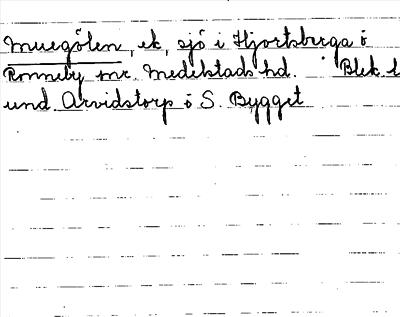 Muegölen, ek, sjö i Hjortsberga o
Ronneby snr. Medelstads hd. Blek l
und. Arvidstorp o S. Bygget